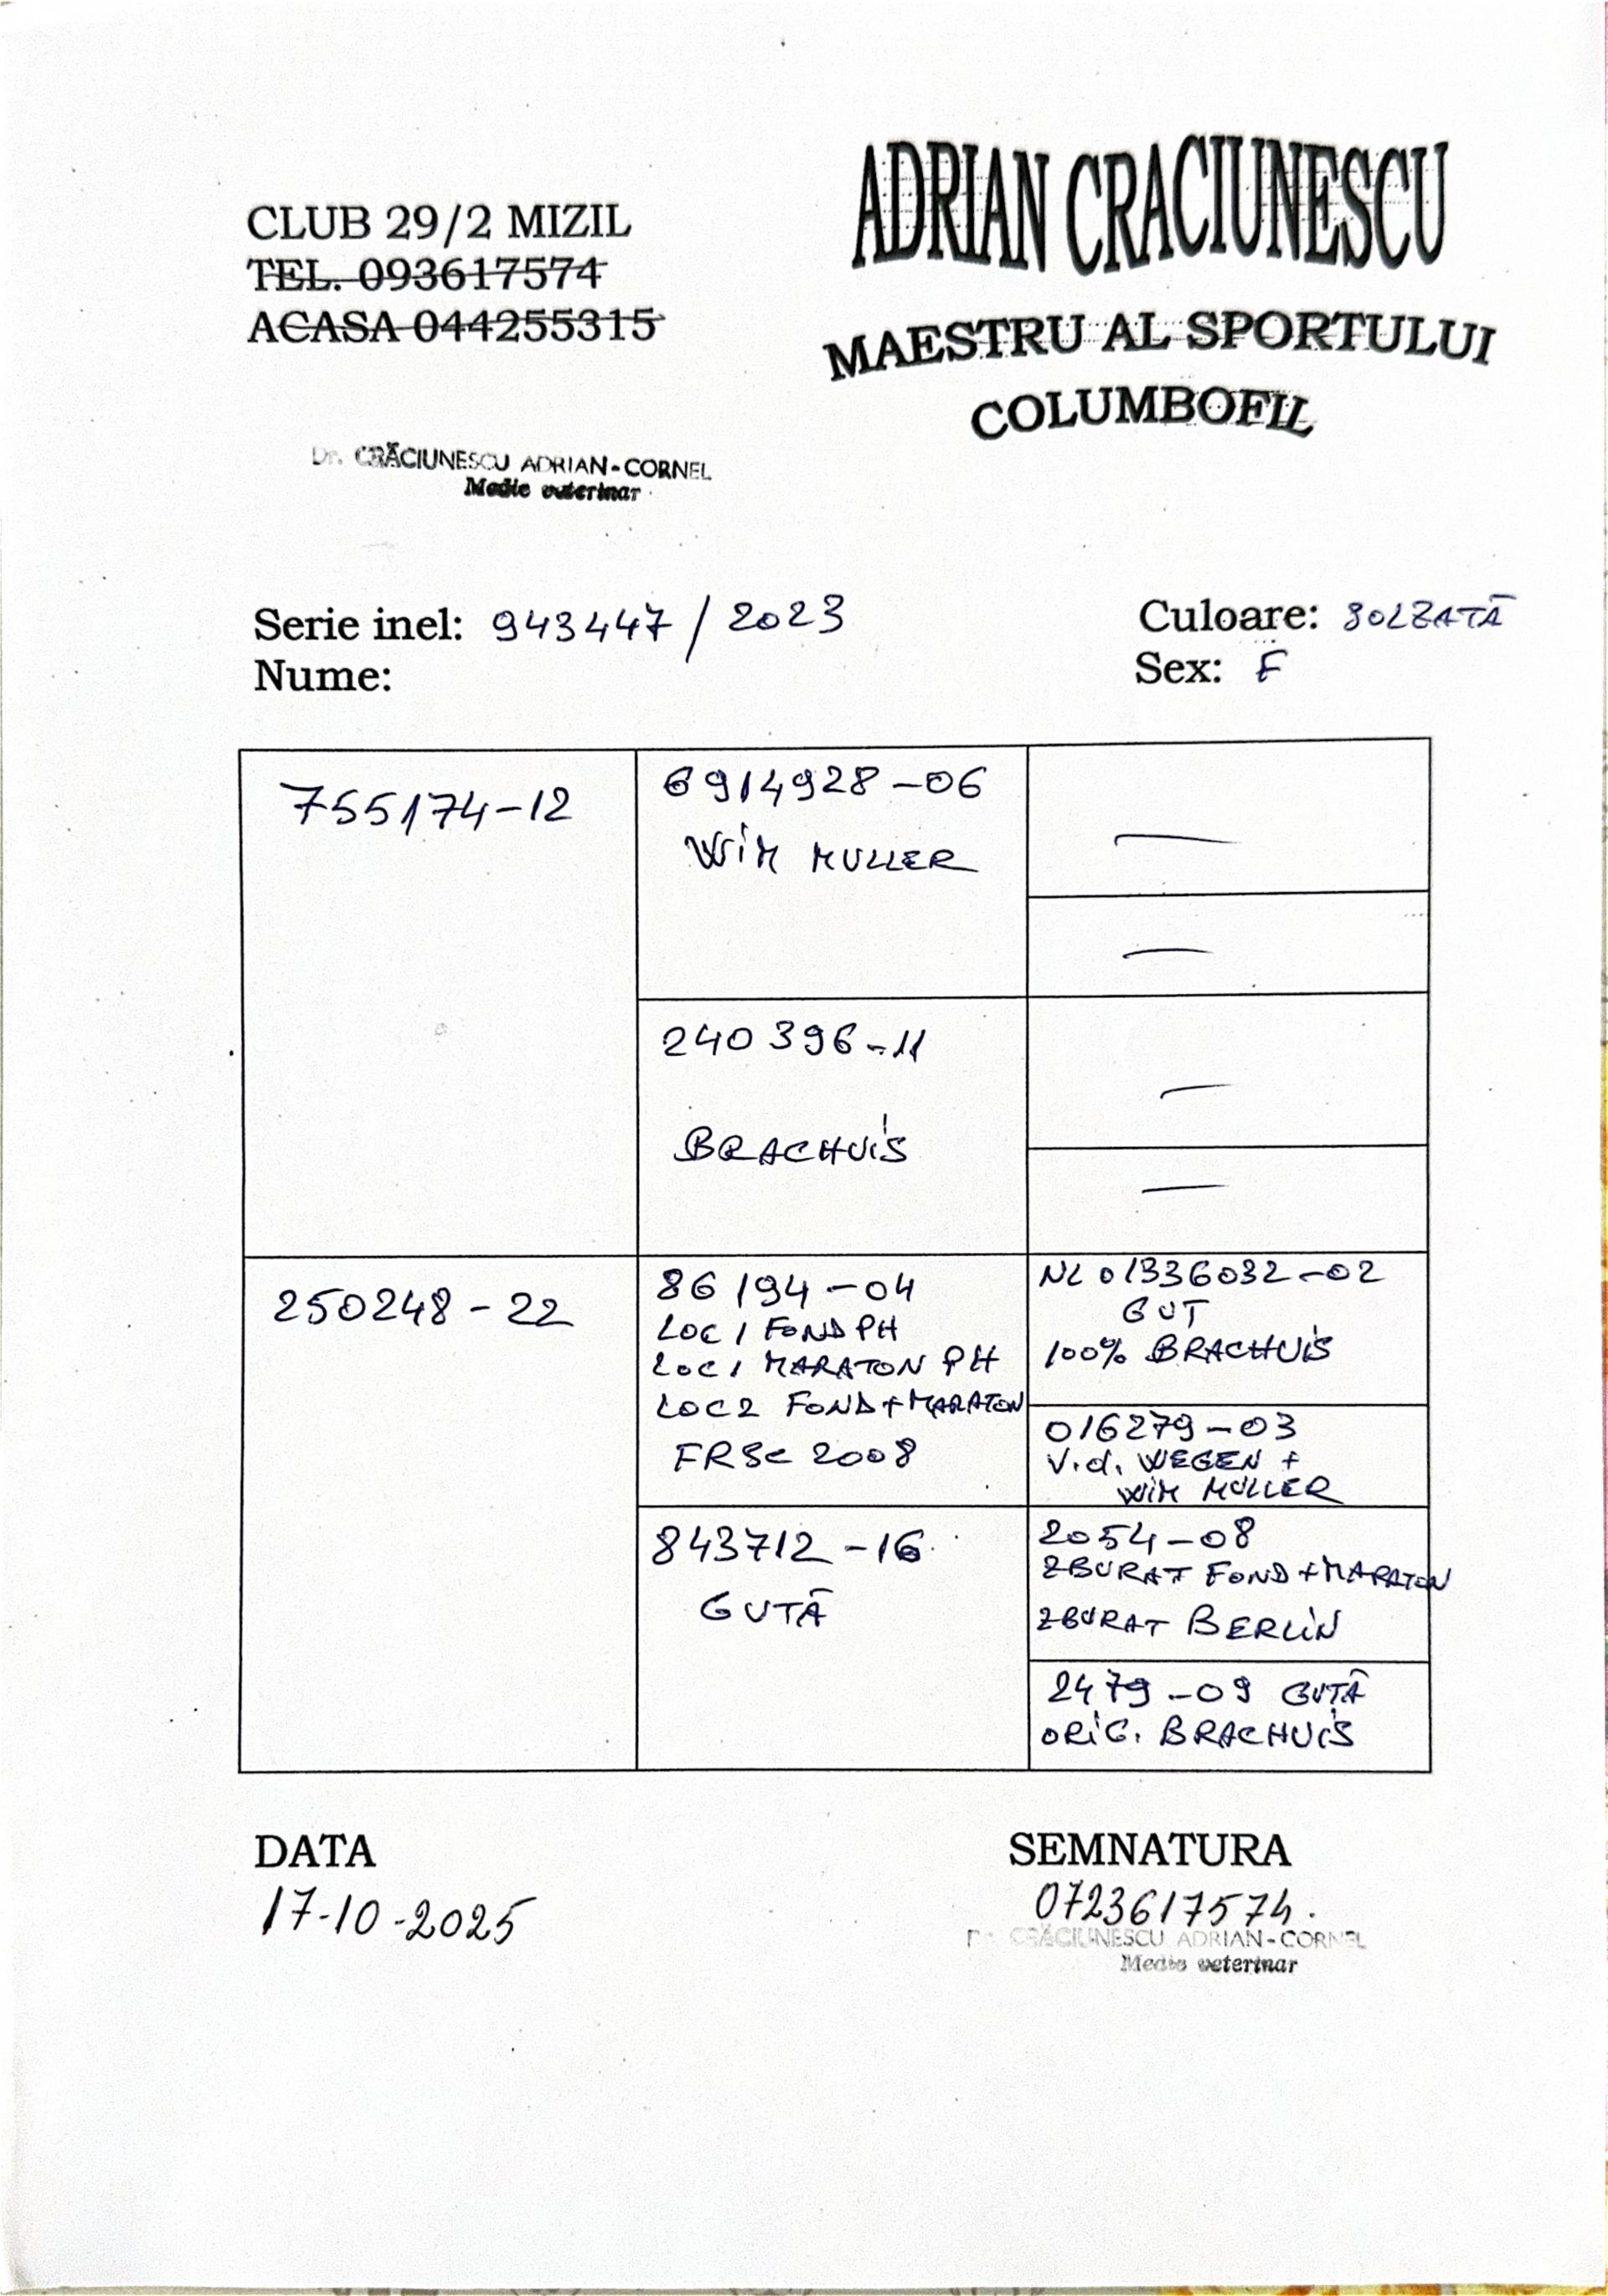 CLUB 29/2 MIZIL
TEL. 093617574
ACASA 044255315
ADRIAN CRACIUNESCU
MAESTRU AL SPORTULUI
COLUMBOFIL
Dr. CRĂCIUNESCU ADRIAN-CORNEL
Medic veterinar
Serie inel: 943447 / 2023
Nume:
Culoare: SOLZATĂ
Sex: F
755174-12
6914928-06
WIM MULLER
240396-11
BRACHUIS
250248-22
86194-04
LOC 1 FOND PH
LOC 1 MARATON PH
LOC 2 FOND+MARATON
FRSC 2008
NL 01336032-02
GUT
100% BRACHUIS
016279-03
V.d. WEGEN +
WIM MULLER
843712-16
GUTĂ
2054-08
ZBURAT FOND+MARATON
ZBURAT BERLIN
2479-09 GUTĂ
ORIG. BRACHUIS
DATA
17-10-2025
SEMNATURA
0723617574.
Dr. CRĂCIUNESCU ADRIAN-CORNEL
Medic veterinar